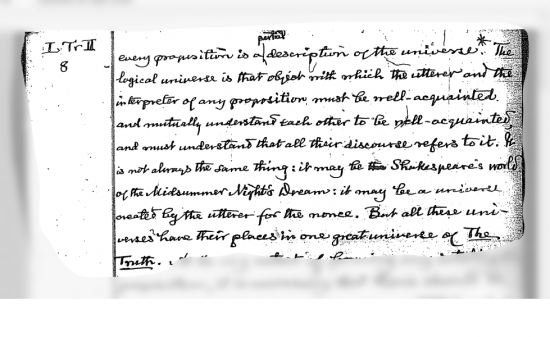 L. Tr II
8
partial
every proposition is a description of the universe.* The
logical universe is that object with which the utterer and the
interpreter of any proposition must be well-acquainted
and mutually understand each other to be well-acquainted,
and must understand that all their discourse refers to it. It
is not always the same thing: it may be the Shakespeare's world
of the Midsummer Night's Dream: it may be a universe
created by the utterer for the nonce. But all these uni-
verses have their places in one great universe of The
Truth.